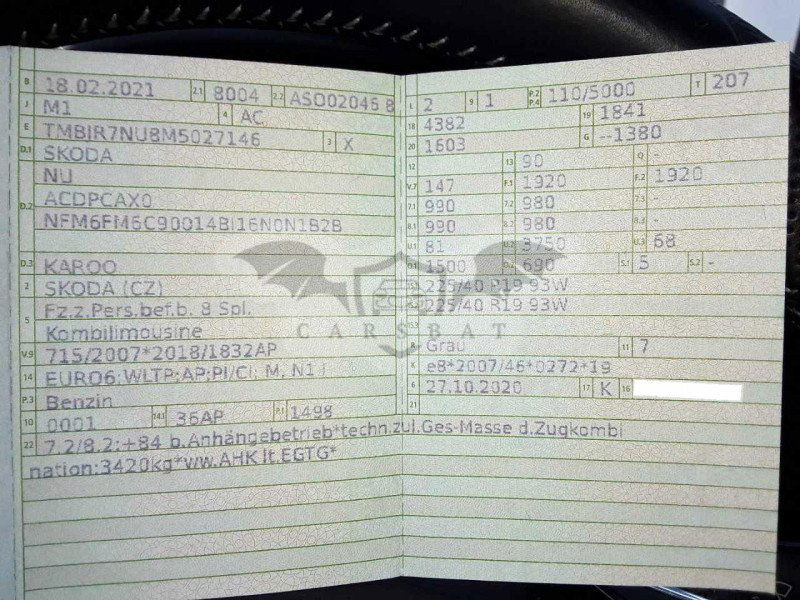 B 18.02.2021 2.1 8004 2.2 ASO02046 8
J M1 4 AC
E TMBJR7NU8M5027146 3 X
D.1 SKODA
NU
D.2 ACDPCAX0
NFM6FM6C90014BI16N0N1B2B
D.3 KAROQ
2 SKODA (CZ)
5 Fz.z.Pers.bef.b. 8 Spl.
Kombilimousine
V.9 715/2007*2018/1832AP
14 EURO6;WLTP;AP;PI/CI; M, N1 I
P.3 Benzin
10 0001 14.1 36AP P.1 1498
L 2 9 1 P.2 P.4 110/5000 T 207
18 4382 19 1841
20 1603 G --1380
12 13 90 Q -
V.7 147 F.1 1920 F.2 1920
7.1 990 7.2 980 7.3 -
8.1 990 8.2 980 8.3 -
U.1 81 U.2 3750 U.3 68
O.1 1500 O.2 690 S.1 5 S.2 -
225/40 R19 93W
225/40 R19 93W
R Grau 11 7
K e8*2007/46*0272*19
6 27.10.2020 17 K 16
21
22 7.2/8.2:+84 b.Anhängebetrieb*techn.zul.Ges-Masse d.Zugkombi
nation:3420kg*ww.AHK lt.EGTG*
CARSBAT